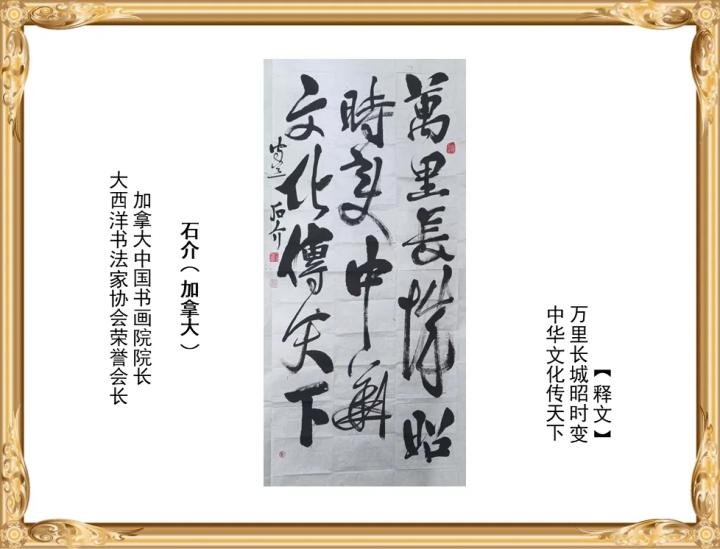 【释文】
万里长城昭时变
中华文化传天下
萬里長城昭
時變中華
文化傳天下
石介
石介（加拿大）
加拿大中国书画院院长
大西洋书法家协会荣誉会长